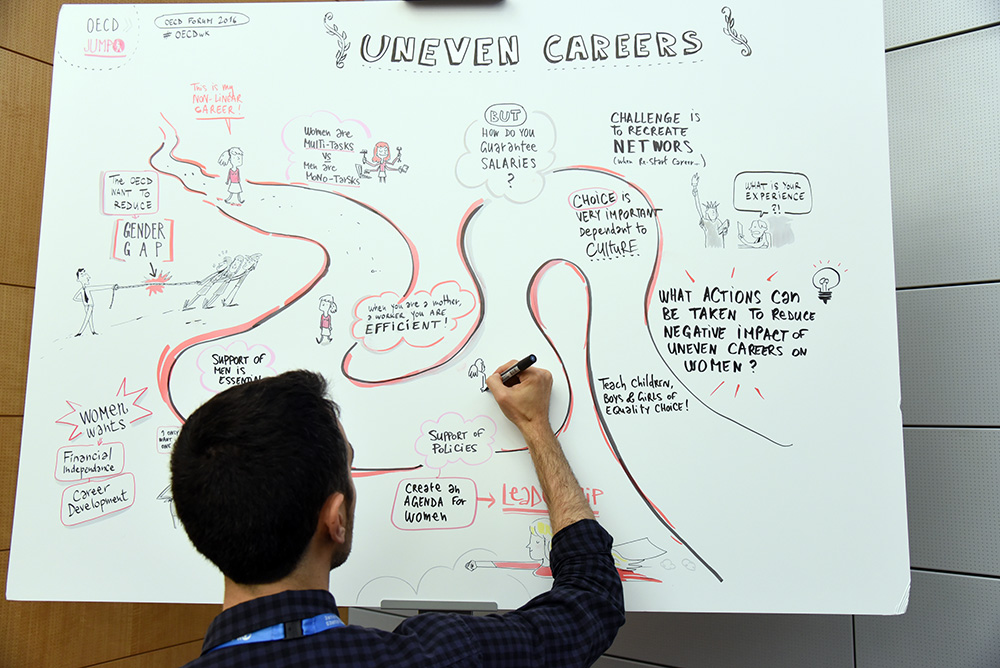 OECD
JUMP
OECD FORUM 2016
# OECDwk
UNEVEN CAREERS
This is my
NON-LINEAR
CAREER!
Women are
MULTI-TASKS
VS
Men are
MONO-TASKS
BUT
HOW DO YOU
Guarantee
SALARIES
?
CHALLENGE IS
TO RECREATE
NETWORS
(When Re-Start Career...)
WHAT IS YOUR
EXPERIENCE
?!
The OECD
WANT TO
REDUCE
GENDER
GAP
CHOICE is
VERY IMPORTANT
Dependant to
CULTURE
When you are a mother,
a worker you are
EFFICIENT!
WHAT ACTIONS CAN
BE TAKEN TO REDUCE
NEGATIVE IMPACT OF
UNEVEN CAREERS ON
WOMEN ?
SUPPORT OF
MEN IS
Teach Children,
BOYS & GIRLS OF
EQUALITY CHOICE!
WOMEN
WANTS
Financial
Independance
Career
Development
I ONLY
WANT
Support of
Policies
CREATE AN
AGENDA FOR
WOMEN